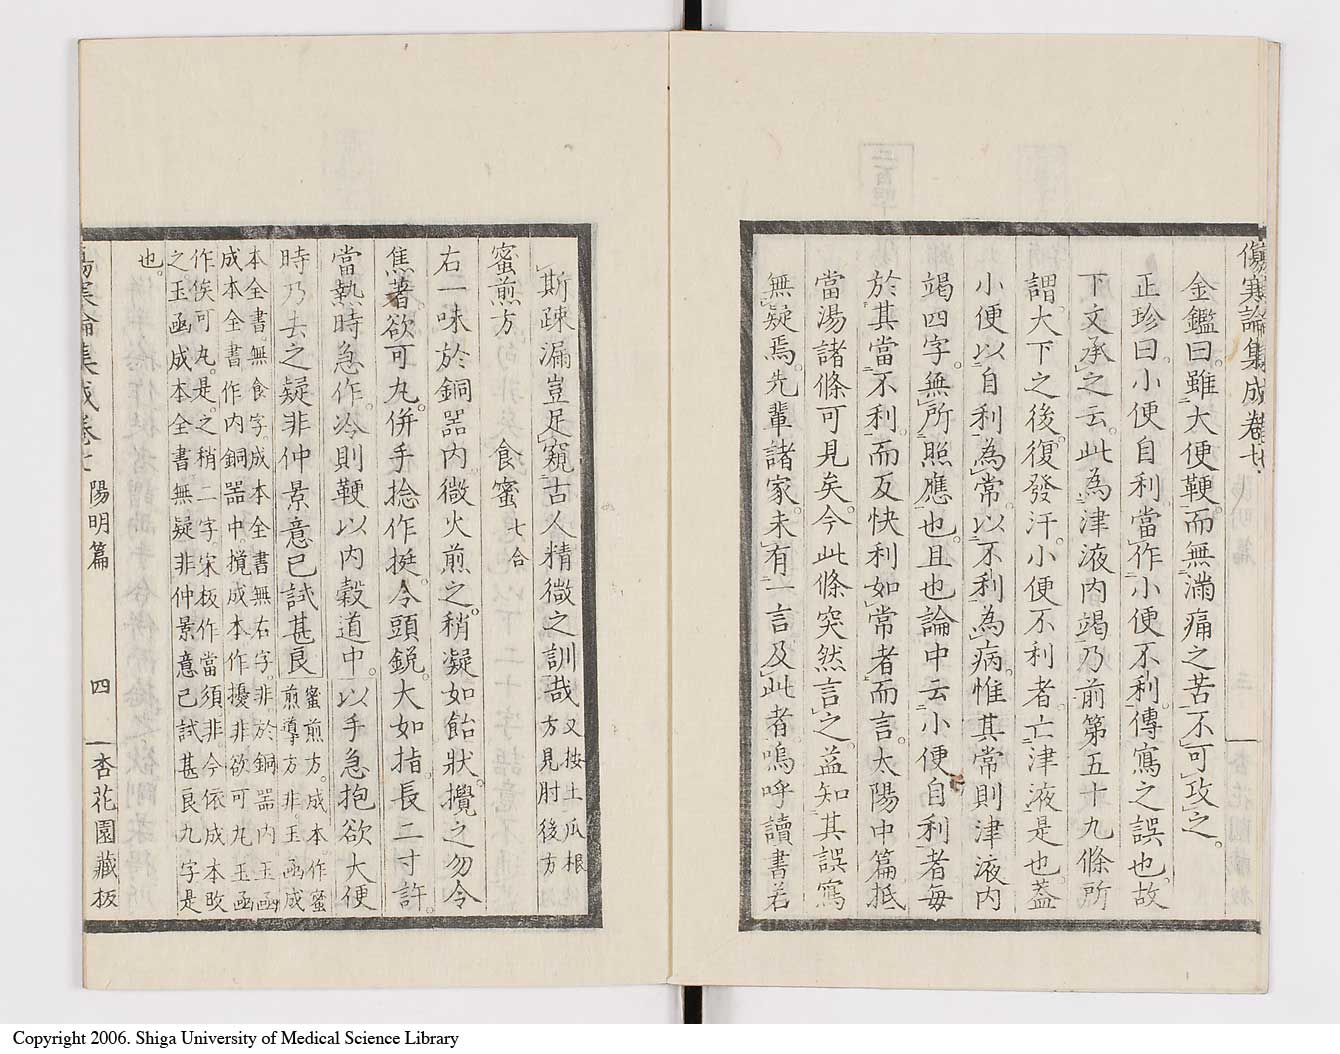 傷寒論集成卷七
金鑑曰。雖大便鞕。而無滿痛之苦。不可攻之。
正珍曰。小便自利。當作小便不利。傳寫之誤也。故
下文承之云。此為津液內竭。乃前第五十九條所
謂。大下之後。復發汗。小便不利者。亡津液。是也。蓋
小便以自利為常。以不利為病。惟其常則津液內
竭四字。無所照應也。且也論中云小便自利者。每
於其當不利。而反快利如常者而言。太陽中篇抵
當湯諸條可見矣。今此條突然言之。益知其誤寫
無疑焉。先輩諸家。未有一言及此者。嗚呼讀書若
斯疎漏。豈足窺古人精微之訓哉 又按土瓜根
方見肘後方
蜜煎方
食蜜 七合
右一味於銅器內。微火煎之。稍凝如飴狀。攪之勿令
焦著。欲可丸。併手捻作挺。令頭銳。大如指。長二寸許。
當熱時急作。冷則鞕。以內穀道中。以手急抱。欲大便
時乃去之。疑非仲景意。已試甚良 蜜煎方。成本。作蜜
煎導方。非。玉函成
本全書。無食字。成本全書無右字。非。於銅器內。玉函
成本全書作內銅器中。攪成本作擾。非。欲可丸。玉函
作俟可丸。是。之稍二字。宋板作當須。非。今依成本改
之。玉函成本全書無疑非仲景意已試甚良九字。是
也。
傷寒論集成卷七 陽明篇 四 杏花園藏板